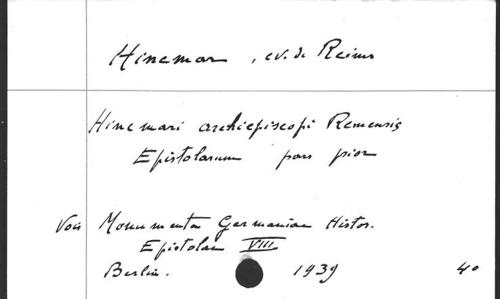 Hincmar, év. de Reims
Hincmari archiepiscopi Remensis
Epistolarum pars prior
Voir Monumenta Germaniae Histor.
Epistolae VIII
Berlin. 1939 4º